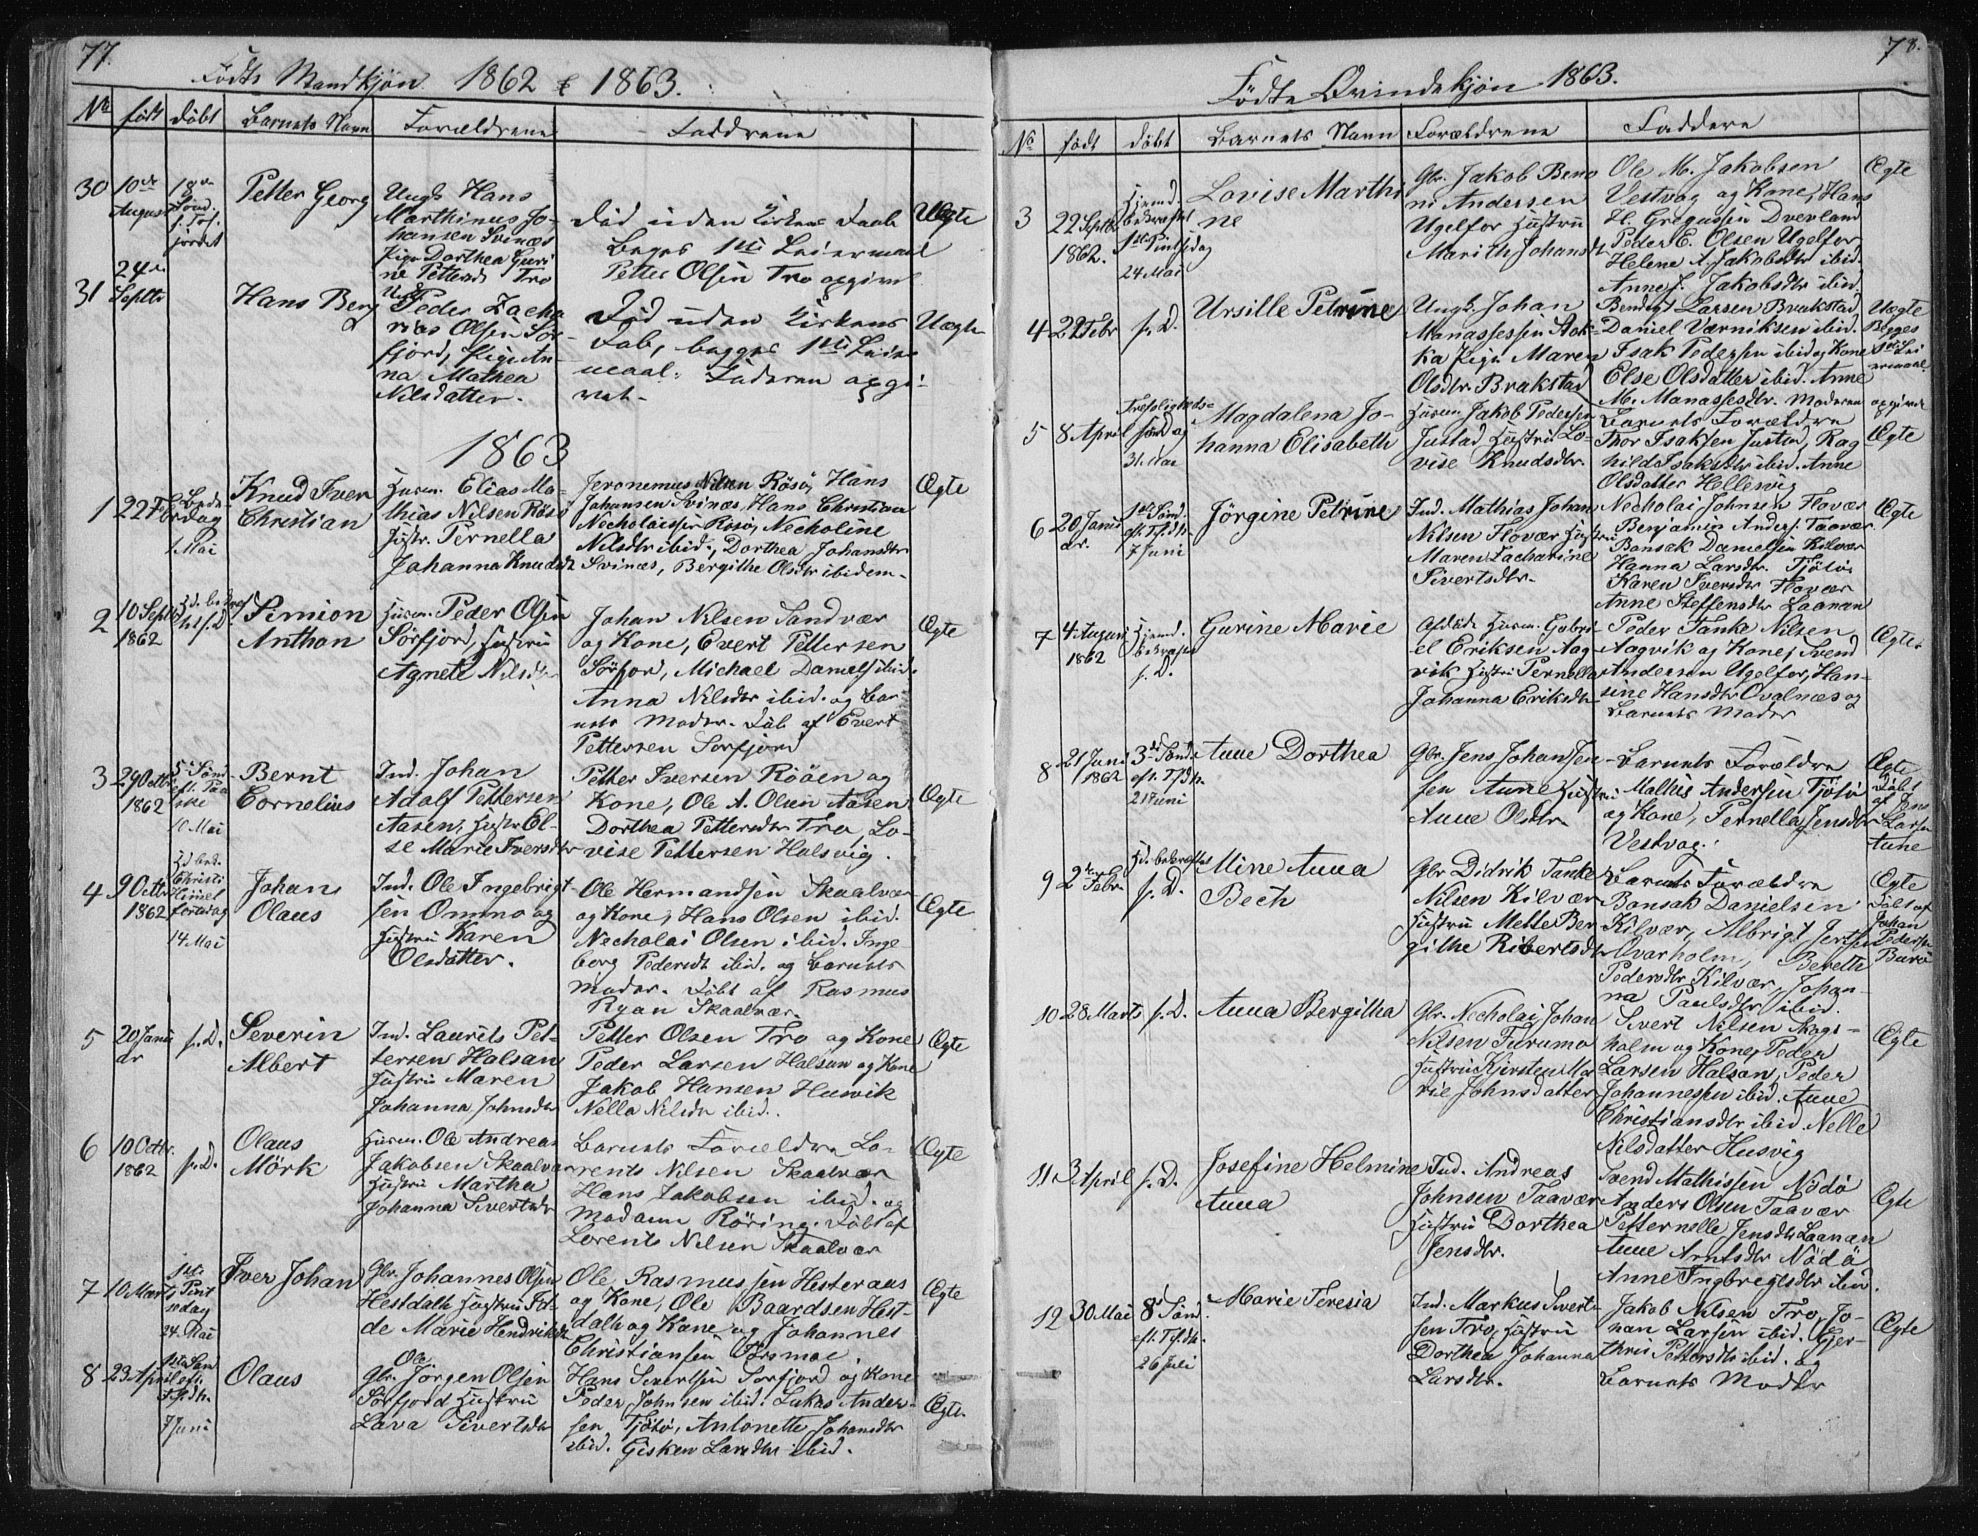 77.
Födte Mandkjön 1862 & 1863.
No födt döbt Barnets Navn Forældrene Faddrene
30 10de August 18de Sönd. f. Tref. Petter Georg
Ungk. Hans
Marthinus Jo-
hansen Svinæs
Pige Dorthea Guri-
ne Pettersd. Tro
Död uden Kirkens Daab
Begges 1ste Leiermaal
Petter Olsen Tro opgivet
Uægte
31 24de Septbr Hans Berg
Ungk. Peder Zacha-
rias Olsen Sör-
fjord, Pige An-
na Mathea
Nilsdatter.
Död uden Kirkens
Daab, begges 1ste Leier-
maal. Faderen opgi-
vet.
Uægte
1863
1 22 Febr Bededag 1 Mai
Knud Iver
Christian
Husm. Elias Ma-
thias Nilsen Rösö
Hustr. Pernella
Johanna Knudsdtr
Jeronemus Nilsen Rösö, Hans
Johansen Svinæs, Hans Christian
Necholaissen Rösö, Necholine
Nilsdtr ibid., Dorthea Johansdtr
Svinæs, Bergithe Olsdtr ibidem.
Ægte
2 10 Septbr 1862
Simion
Anthon
Husm. Peder Olsen
Sörfjord, Hustru
Agnete Nilsdtr
Johan Nilsen Sandvær
og Kone, Evert Pettersen
Sörfjord, Michael Danielsen ibid.
Anna Nilsdtr ibid. og Bar-
nets Moder. Döb. af Evert
Pettersen Sörfjord
Ægte
3 29 Octbr 1862 5te Sönd. eft. Paaske 10 Mai
Bernt
Cornelius
Ind. Johan
Adolf Pettersen
Aasen, Hustr. El-
se Marie Iversdtr
Petter Iversen Rööen og
Kone, Ole A. Olsen Aasen
Dorthea Pettersdtr Tro, Lo-
vise Pettersen Halsvig.
Ægte
4 9 Octbr 1862 Hd. bekr. Christi Himmelfartsdag 14 Mai
Johans
Olaus
Ind. Ole Ingebrigt-
sen Ommo og
Hustru Karen
Olsdatter.
Ole Hermandsen Skaalvær
og Kone, Hans Olsen ibid.
Necholai Olsen ibid. Inge-
borg Pedersdt ibid. og Barnets
Moder. Döbt af Rasmus
Ryan Skaalvær.
Ægte
5 20 Januar s. D.
Severin
Albert
Ind. Laurits Pet-
tersen Halsan
Hustru Maren
Johanna Johnsdtr
Petter Olsen Tro og Kone
Peder Larsen Halsan og Kone
Jakob Hansen Husvik
Nella Nilsdtr ibid.
Ægte
6 10 Octbr. 1862 s. D.
Olaus
Mörk
Husm. Ole Andreas
Jakobsen Skaalvær
Hustru Martha
Johanna Sivertsdtr
Barnets Forældre Lo-
rents Nilsen Skaalvær
Hans Jakobsen ibid. og
Madam Röring. Döbt af
Lorents Nilsen Skaalvær
Ægte
7 10 Marts 1ste Pintsedag 24 Mai
Iver Johan
Gbr. Johannes Olsen
Hestdalh Hustru
Marie Hendriksdtr
Ole Rasmussen Hesteraas
og Kone, Ole Baardsen Hest-
dalh og Kone og Johannes
Christiansen Forsmoe
Ægte
8 23 April 1ste Sönd. eft. Trfdh. 7 Juni
Olaus
Gbr. Ole Jörgen Olsen
Sörfjord Hustru
Lava Sivertsdtr
Hans Sivertsen Sörfjord og Kone
Peder Johnsen ibid. Lukas Ander-
sen Tjötö, Antonette Johansdtr
ibid. Gisken Larsdtr ibid.
Ægte.
78.
Födte Qvindekjön 1863.
No födt döbt Barnets Navn Forældrene Faddere
3 22 Septbr 1862. Hjemd. bekræftet 1ste Pintsdag 24 Mai
Lovise Marthi-
ne
Gbr. Jakob Beno-
ni Andersen
Ugelfor Hustru
Marith Johansdtr
Ole M. Jakobsen
Vestvog og Kone, Hans
H. Gregussen Dverland
Peder E. Olsen Ugelfor
Helene A. Jakobsdtr ibid.
Anne J. Jakobsdtr ibid.
Ægte
4 22 Febr s. D.
Ursille Petrine
Ungk. Johan
Manassessen
Pige Maren
Olsdtr. Brakstad
Bendigt Larsen Brakstad
Daniel Værniksen ibid.
Isak Pedersen ibid og Kone
Else Olsdatter ibid. Anne
M. Manassesdtr. Moderen
Uægte
Begges
1ste Lei-
ermaal.
opgivet
5 8 April Trefoligheds-sönd og 31. Mai
Magdalena Jo-
hanna Elisabeth
Husm. Jakob Pedersen
Justad Hustru Lo-
vise Knudsdtr.
Barnets Forældre
Thor Isaksen Justad, Rag-
hild Isaksdtr ibid. Anne
Olsdatter Hellesvig
Ægte
6 20 Januar. 1ste Sönd. eft. Tfdh. 7 Juni
Jörgine Petrine
Ind. Mathias Johan
Nilsen Flovær Hustru
Maren Zacharine
Sivertsdtr.
Necholai Johnsen Flovær
Benjamin Anders. Taavær
Bonsak Danielsen Kilvær
Hanna Larsdtr. Tjötö
Karen Iversdtr Flovær
Anne Steffensdtr Laanan
Ægte
7 4 August 1862 Hjemd. bekræftet s. D.
Gurine Marie
Afdöde Husm. Gabri-
el Eriksen Aag-
vik Hustru Pernella
Johanna Eriksdtr
Peder Tanke Nilsen
Aagvik og Kone, Svend
Andersen Ugelfor, Han-
sine Hansdtr Qvalnæs og
Barnets Moder
Ægte
8 21 Juni 1862 3die Sönd. eft. Tfdh. 21 Juni
Anne Dorthea
Gbr. Jens Johan Jen-
sen Aune Hustru
Anne Olsdtr.
Barnets Forældre
Mathis Andersen Tjötö
og Kone, Pernella Jensdtr
Vestvog.
Ægte
Döbt
af Jens
Larsen
Aune
9 2 Febr. Hd. bekræftet s. D.
Mine Anna
Bech
Gbr Didrik Tanke
Nilsen Kilvær
Hustru Mette Ber-
githe Ribertsdtr
Barnets Forældre
Bonsak Danielsen
Kilvær, Albrigt Jertsen
Qvarholm, Berette
Pedersdtr Kilvær, Johan-
na Paulsdtr ibid.
Ægte
Döbt af
Johan
Pedersen
Burö
10 28 Marts s. D. Anna Bergitha
Gbr. Necholai Johan
Nilsen Furumo
Hustru Kjersten Ma-
rie Johnsdatter
Sivert Nilsen Skogs-
holm og Kone, Peder
Larsen Halsan, Peder
Johannessen ibid. Anne
Christiansdtr ibid. Nelle
Nilsdatter Husvig
Ægte
11 3 April s. D.
Josefine Helmine
Anna
Ind. Andreas
Johnsen Taavær
Hustru Dorthea
Jensdtr.
Svend Mathissen Nödö
Anders Olsen Taavær
Petternelle Jensdtr Laanan
Anne Arntsdtr Nödö
Anne Ingbregtsdtr ibid.
Ægte
12 30 Mai 8de Sönd. eft. Tfdh. 26 Juli
Marie Teresia
Ind. Markus Sivert-
sen Tro, Hustru
Dorthea Johanna
Larsdtr.
Jakob Nilsen Tro, Jo-
han Larsen ibid. Gjer-
thru Pettersdtr ibid. og
Barnets Moder
Ægte